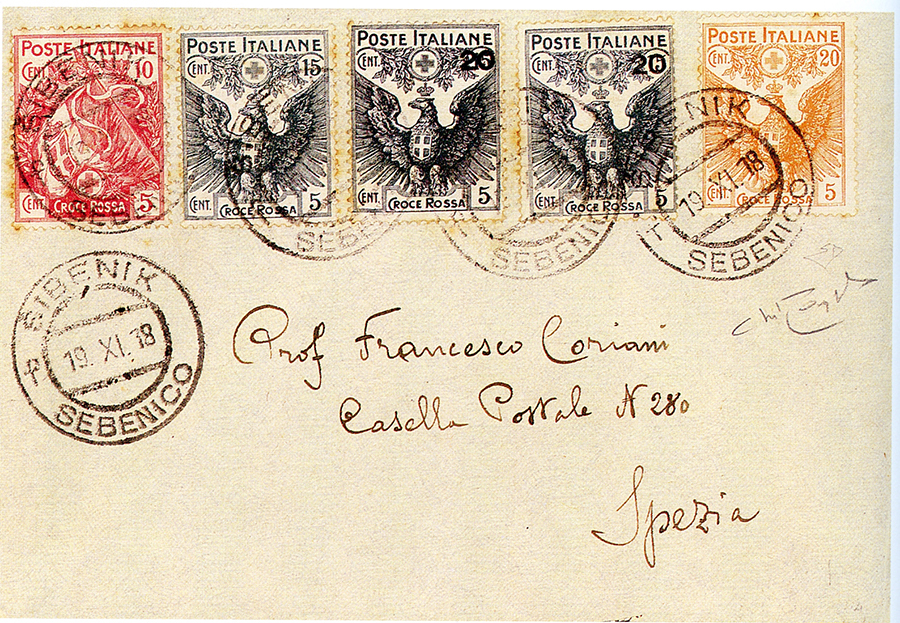 POSTE ITALIANE
CENT. 10
CENT. 5
CROCE ROSSA
POSTE ITALIANE
CENT. 15
CENT. 5
CROCE ROSSA
POSTE ITALIANE
CENT. 20
CENT. 5
CROCE ROSSA
POSTE ITALIANE
CENT. 20
CENT. 5
CROCE ROSSA
POSTE ITALIANE
CENT. 20
CENT. 5
CROCE ROSSA
SIBENIK
SEBENICO
SEBENICO
SEBENICO
19. XI. 18
SEBENICO
SIBENIK
19. XI. 18
SEBENICO
Prof Francesco Coriani
Casella Postale N 280
Spezia